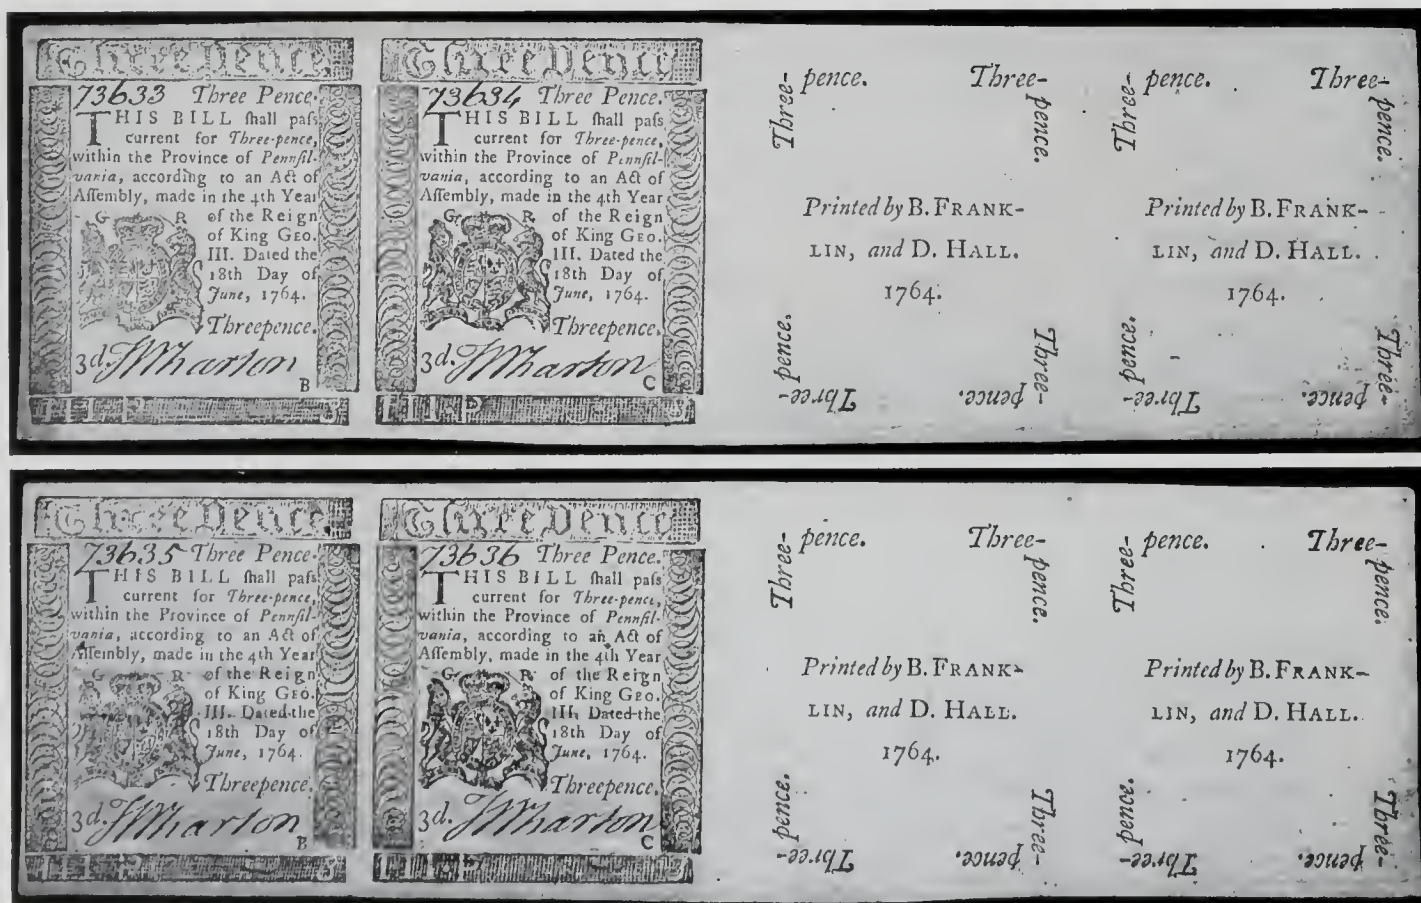 Three Pence
73633 Three Pence.
THIS BILL ſhall paſs
current for Three-pence,
within the Province of Pennſil-
vania, according to an Act of
Aſſembly, made in the 4th Year
G R of the Reign
of King GEO.
III. Dated the
18th Day of
June, 1764.
Threepence.
3d. TWharton
B
III P 3
Three Pence
73634 Three Pence.
THIS BILL ſhall paſs
current for Three-pence,
within the Province of Pennſil-
vania, according to an Act of
Aſſembly, made in the 4th Year
G R of the Reign
of King GEO.
III. Dated the
18th Day of
June, 1764.
Threepence.
3d. TWharton
C
III P 3
Three-pence. Three-pence.
Printed by B. FRANK-
LIN, and D. HALL.
1764.
Three-pence. Three-pence.
Three-pence. Three-pence.
Printed by B. FRANK-
LIN, and D. HALL.
1764.
Three-pence. Three-pence.
Three Pence
73635 Three Pence.
THIS BILL ſhall paſs
current for Three-pence,
within the Province of Pennſil-
vania, according to an Act of
Aſſembly, made in the 4th Year
G R of the Reign
of King GEO.
III. Dated the
18th Day of
June, 1764.
Threepence.
3d. TWharton
B
III P 3
Three Pence
73636 Three Pence.
THIS BILL ſhall paſs
current for Three-pence,
within the Province of Pennſil-
vania, according to an Act of
Aſſembly, made in the 4th Year
G R of the Reign
of King GEO.
III. Dated the
18th Day of
June, 1764.
Threepence.
3d. TWharton
C
III P 3
Three-pence. Three-pence.
Printed by B. FRANK-
LIN, and D. HALL.
1764.
Three-pence. Three-pence.
Three-pence. Three-pence.
Printed by B. FRANK-
LIN, and D. HALL.
1764.
Three-pence. Three-pence.